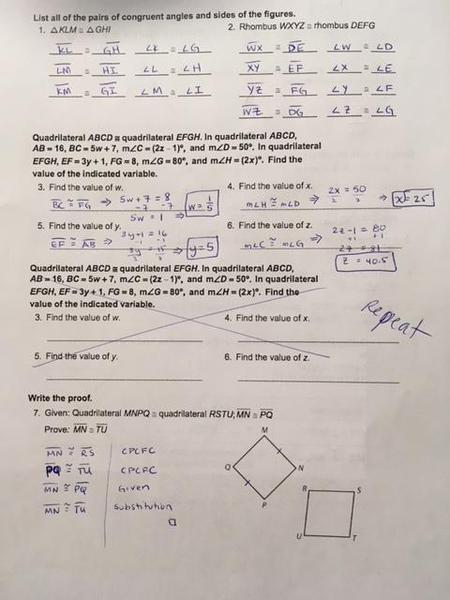 List all of the pairs of congruent angles and sides of the figures.
1. △KLM ≅ △GHI
2. Rhombus WXYZ ≅ rhombus DEFG
KL ≅ GH ∠K ≅ ∠G
WX ≅ DE ∠W ≅ ∠D
LM ≅ HI ∠L ≅ ∠H
XY ≅ EF ∠X ≅ ∠E
KM ≅ GI ∠M ≅ ∠I
YZ ≅ FG ∠Y ≅ ∠F
WZ ≅ DG ∠Z ≅ ∠G
Quadrilateral ABCD ≅ quadrilateral EFGH. In quadrilateral ABCD,
AB = 16, BC = 5w + 7, m∠C = (2z − 1)°, and m∠D = 50°. In quadrilateral
EFGH, EF = 3y + 1, FG = 8, m∠G = 80°, and m∠H = (2x)°. Find the
value of the indicated variable.
3. Find the value of w.
BC ≅ FG ⇒ 5w + 7 = 8
-7 -7
5w = 1 ⇒ w = 1/5
4. Find the value of x.
m∠H ≅ m∠D ⇒ 2x = 50 ⇒ x = 25
2 2
5. Find the value of y.
EF ≅ AB ⇒ 3y+1 = 16
-1 -1
3y = 15 ⇒ y = 5
3 3
6. Find the value of z.
m∠C ≅ m∠G ⇒ 2z-1 = 80
+1 +1
2z = 81
z = 40.5
Quadrilateral ABCD ≅ quadrilateral EFGH. In quadrilateral ABCD,
AB = 16, BC = 5w + 7, m∠C = (2z − 1)°, and m∠D = 50°. In quadrilateral
EFGH, EF = 3y + 1, FG = 8, m∠G = 80°, and m∠H = (2x)°. Find the
value of the indicated variable.
3. Find the value of w.
4. Find the value of x.
Repeat
5. Find the value of y.
6. Find the value of z.
Write the proof.
7. Given: Quadrilateral MNPQ ≅ quadrilateral RSTU; MN ≅ PQ
Prove: MN ≅ TU
MN ≅ RS CPCFC
PQ ≅ TU CPCFC
MN ≅ PQ Given
MN ≅ TU Substitution
M
Q
N
P
R
S
U
T